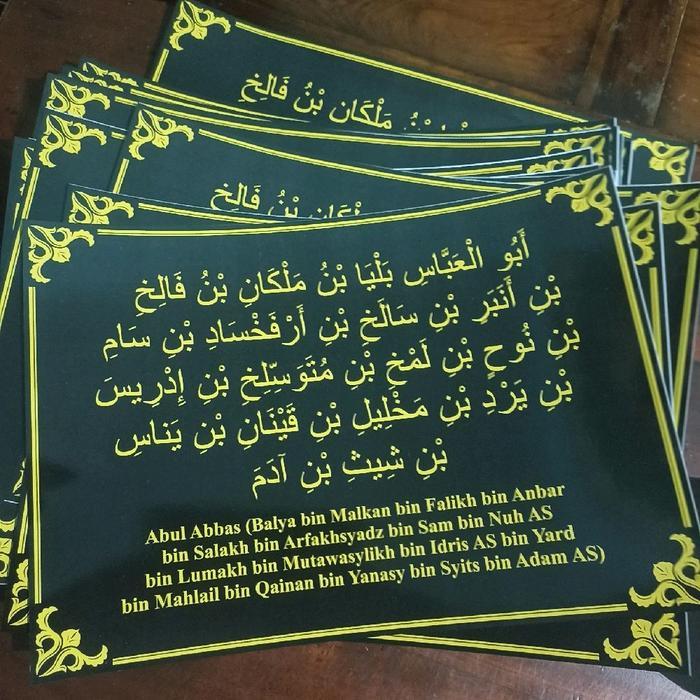 مَلْكَان بْنُ فَالِخِ
بْنُ فَالِخِ
أَبُو الْعَبَّاسِ بَلْيَا بْنُ مَلْكَانِ بْنُ فَالِخِ
بْنِ أَنْبَرِ بْنِ سَالَخِ بْنِ أَرْفَخْسَادِ بْنِ سَامِ
بْنِ نُوحِ بْنِ لَمْخِ بْنِ مُتَوَسِّلِخِ بْنِ إِدْرِيسَ
بْنِ يَرْدِ بْنِ مَخْلِيلِ بْنِ قَيْنَانِ بْنِ يَنَاسِ
بْنِ شِيثِ بْنِ آدَمَ
Abul Abbas (Balya bin Malkan bin Falikh bin Anbar
bin Salakh bin Arfakhsyadz bin Sam bin Nuh AS
bin Lumakh bin Mutawasylikh bin Idris AS bin Yard
bin Mahlail bin Qainan bin Yanasy bin Syits bin Adam AS)